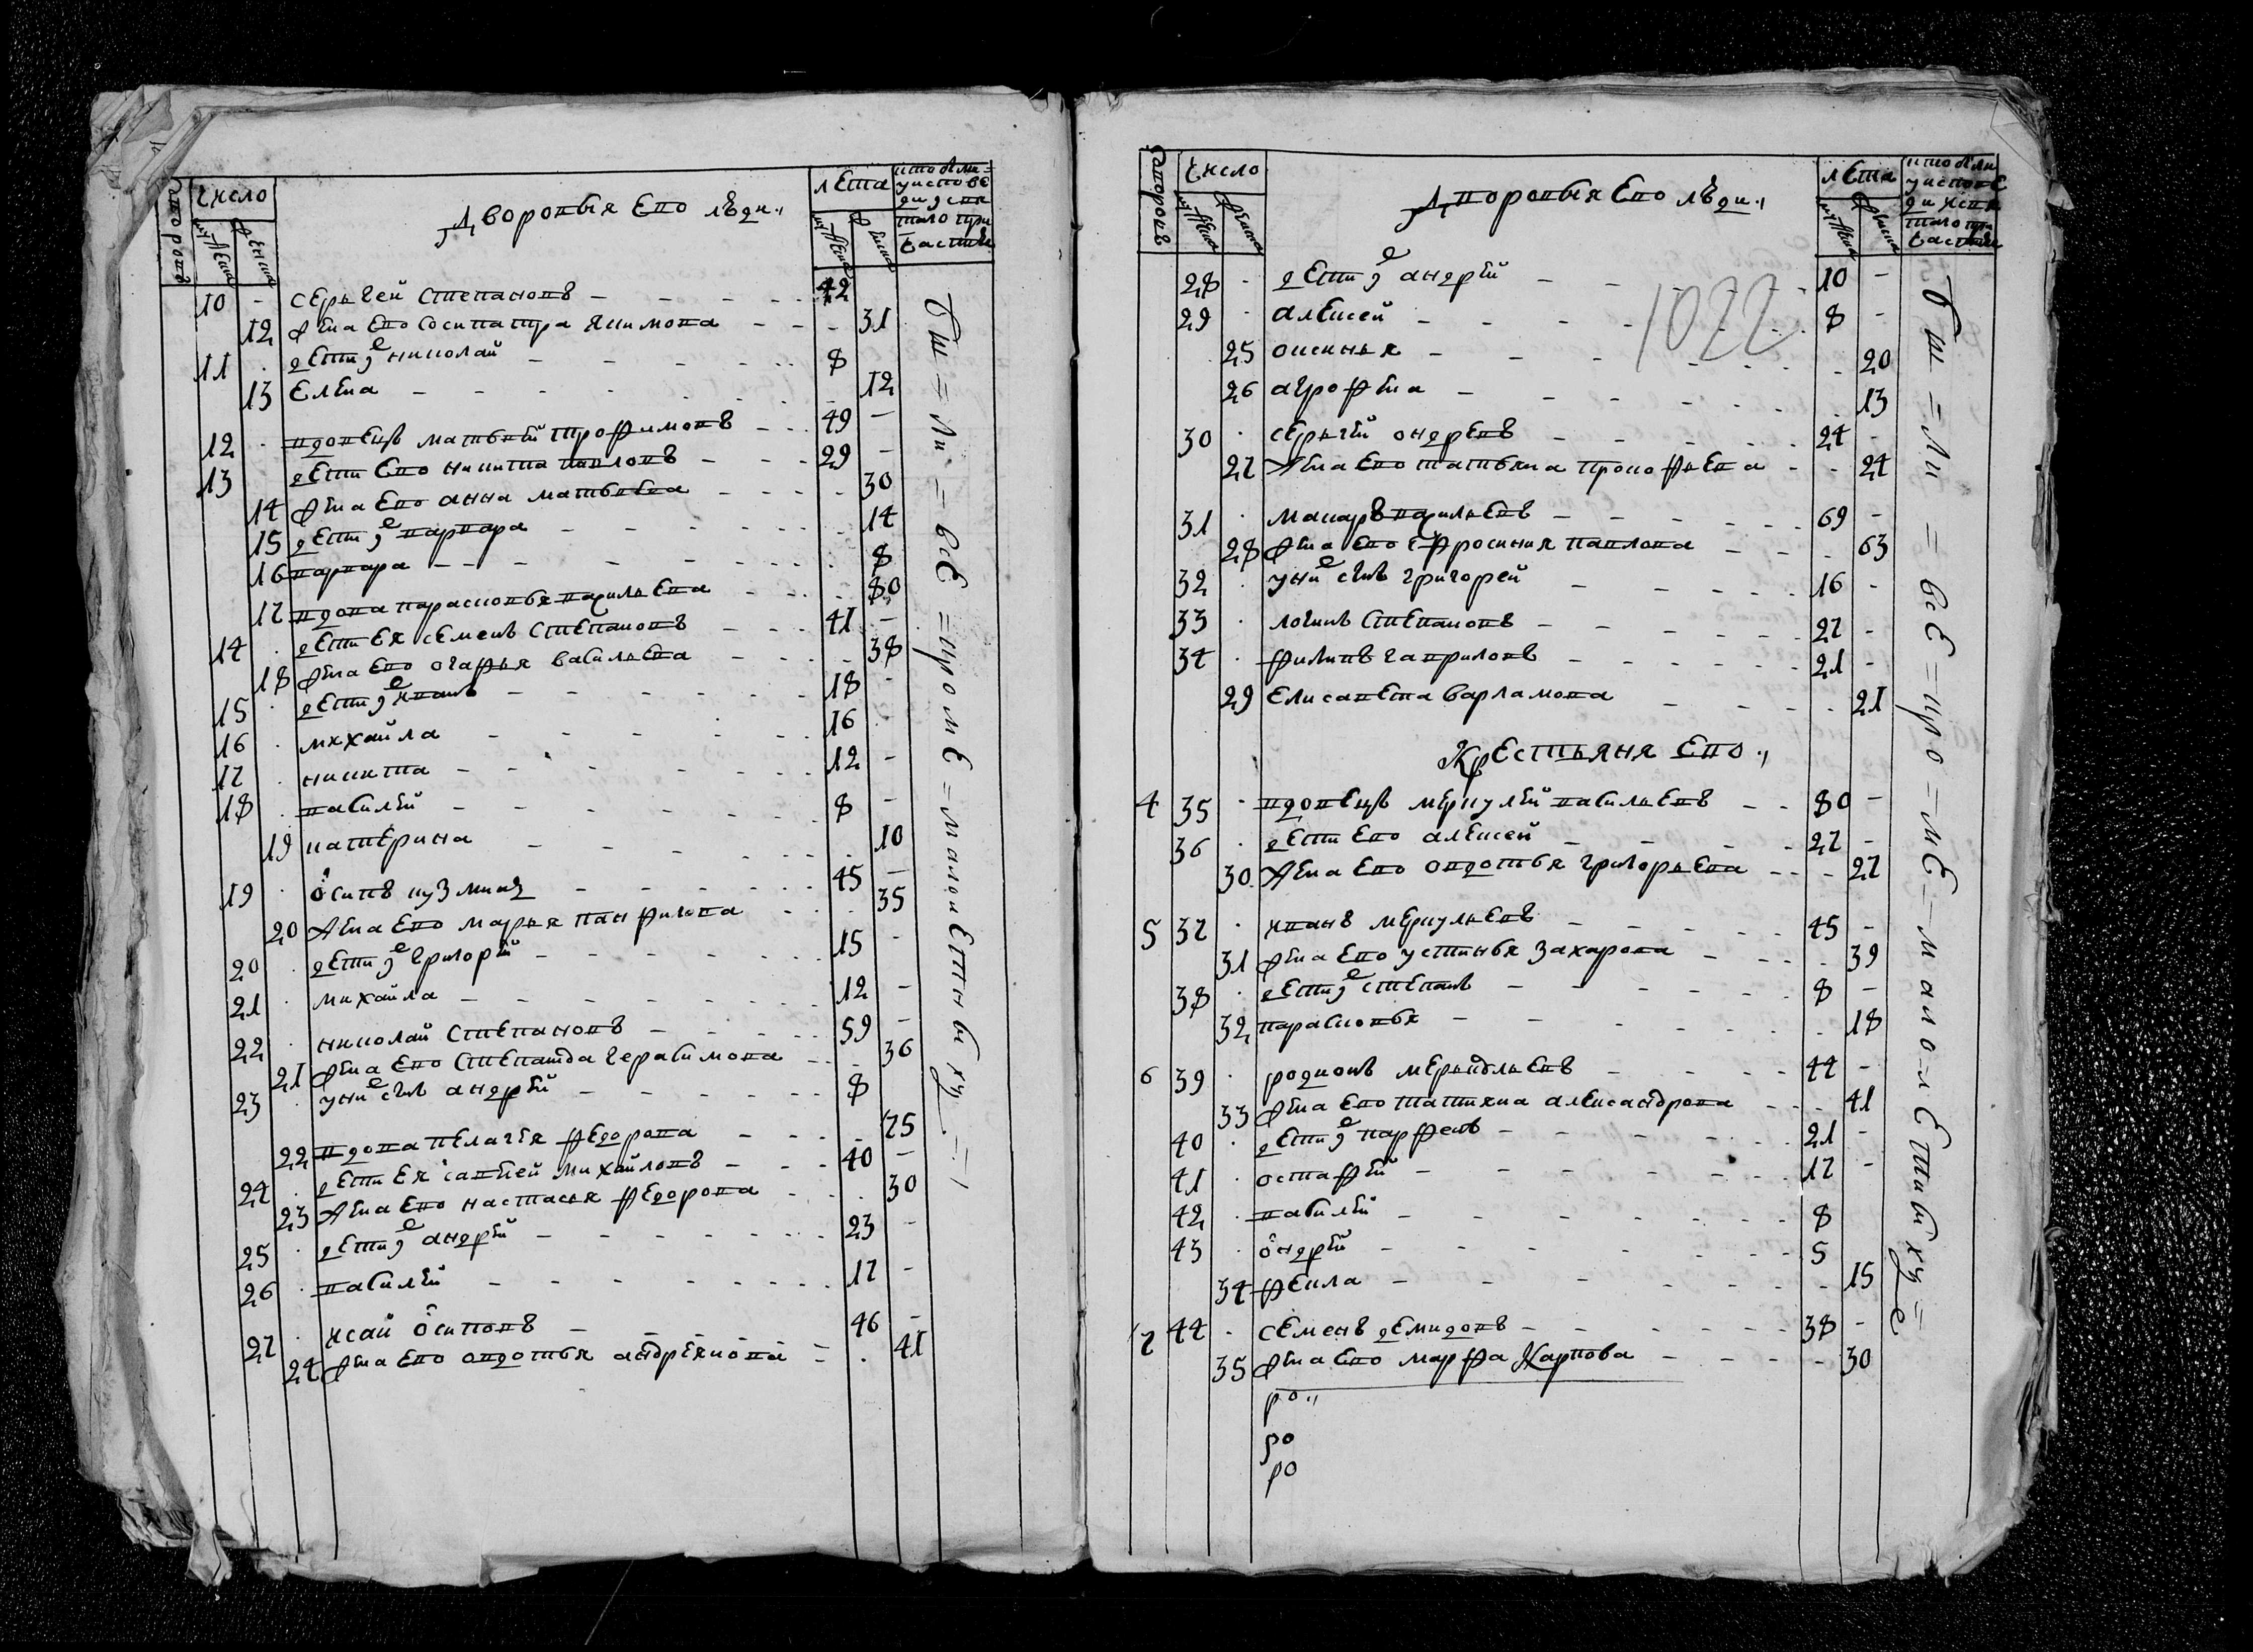 дворовъ
число
мужеска
женска
Дворовыя Ево люди
лета
мужеска
женска
кто были
у исповѣ
ди и свя
таго при
частия
10 - Сергей Степановъ - 42
12 Жена Ево Сосипатра Якимова - 31
11 дети их Николай - 8
13 Елена - 12
12 вдовецъ Матвей Трофимовъ - 49 -
13 дети Ево Никита Павловъ - 29 -
14 Жена Ево Анна Матвеева - 30
15 дети их варвара - 14
16 варвара - 8
17 вдова Парасковья василева - 80
14 дети Ея Семенъ Степановъ - 41 -
18 Жена Ево Огафья васильева - 38
15 дети их Иванъ - 18 -
16 михайла - 16
17 никита - 12 -
18 василей - 8 -
19 катерина - 10
19 Осипъ Кузминъ - 45 -
20 Жена Ево Марья Панфилова - 35
20 дети их Григорей - 15 -
21 михайла - 12 -
22 николай Степановъ - 59 -
21 Жена Ево Степанида Герасимова - 36
23 у них сынъ андрей - 8
22 вдова Пелагея Федорова - 75
24 дети Ея Савѣлей Михайловъ - 40 -
23 Жена Ево настасья Федорова - 30
25 дети их андрей - 23 -
26 василей - 17 -
27 Исай Осиповъ - 46 -
24 Жена Ево овдотья андреянова - 41
Были все кроме малолетныхъ
дворовъ
число
мужеска
женска
Дворовыя Ево люди
лета
мужеска
женска
кто были
у исповѣ
ди и свя
таго при
частия
1022
28 - дети их андрей - 10 -
29 - алексей - 8 -
25 оксинья - 20
26 агрофена - 13
30 - Сергей ондреевъ - 24 -
27 Жена Ево татьяна прокофьева - 24
31 - макаръ васильевъ - 69 -
28 Жена Ево Ефросиния павлова - 63
32 у них сынъ григорей - 16 -
33 - логинъ Степановъ - 27 -
34 - филипъ гавриловъ - 21 -
29 Елисавета варламова - 21
Крестьяня Ево
4 35 - вдовецъ меркулей васильевъ - 80 -
36 - дети Ево алексей - 27 -
30 Жена Ево овдотья григорьева - 27
5 37 - Иванъ меркульевъ - 45 -
31 Жена Ево устинья захарова - 39
38 - дети их степанъ - 8 -
32 парасковья - 18
6 39 - родионъ меркульевъ - 44 -
33 Жена Ево татияна александрова - 41
40 - дети их парфенъ - 21 -
41 - остафей - 17 -
42 - василей - 8
43 - ондрей - 5
34 фекла - 15
7 44 - Семенъ демидовъ - 38 -
35 Жена Ево марфа Карпова - 30
ро
ро
ро
Были все кроме малолетныхъ